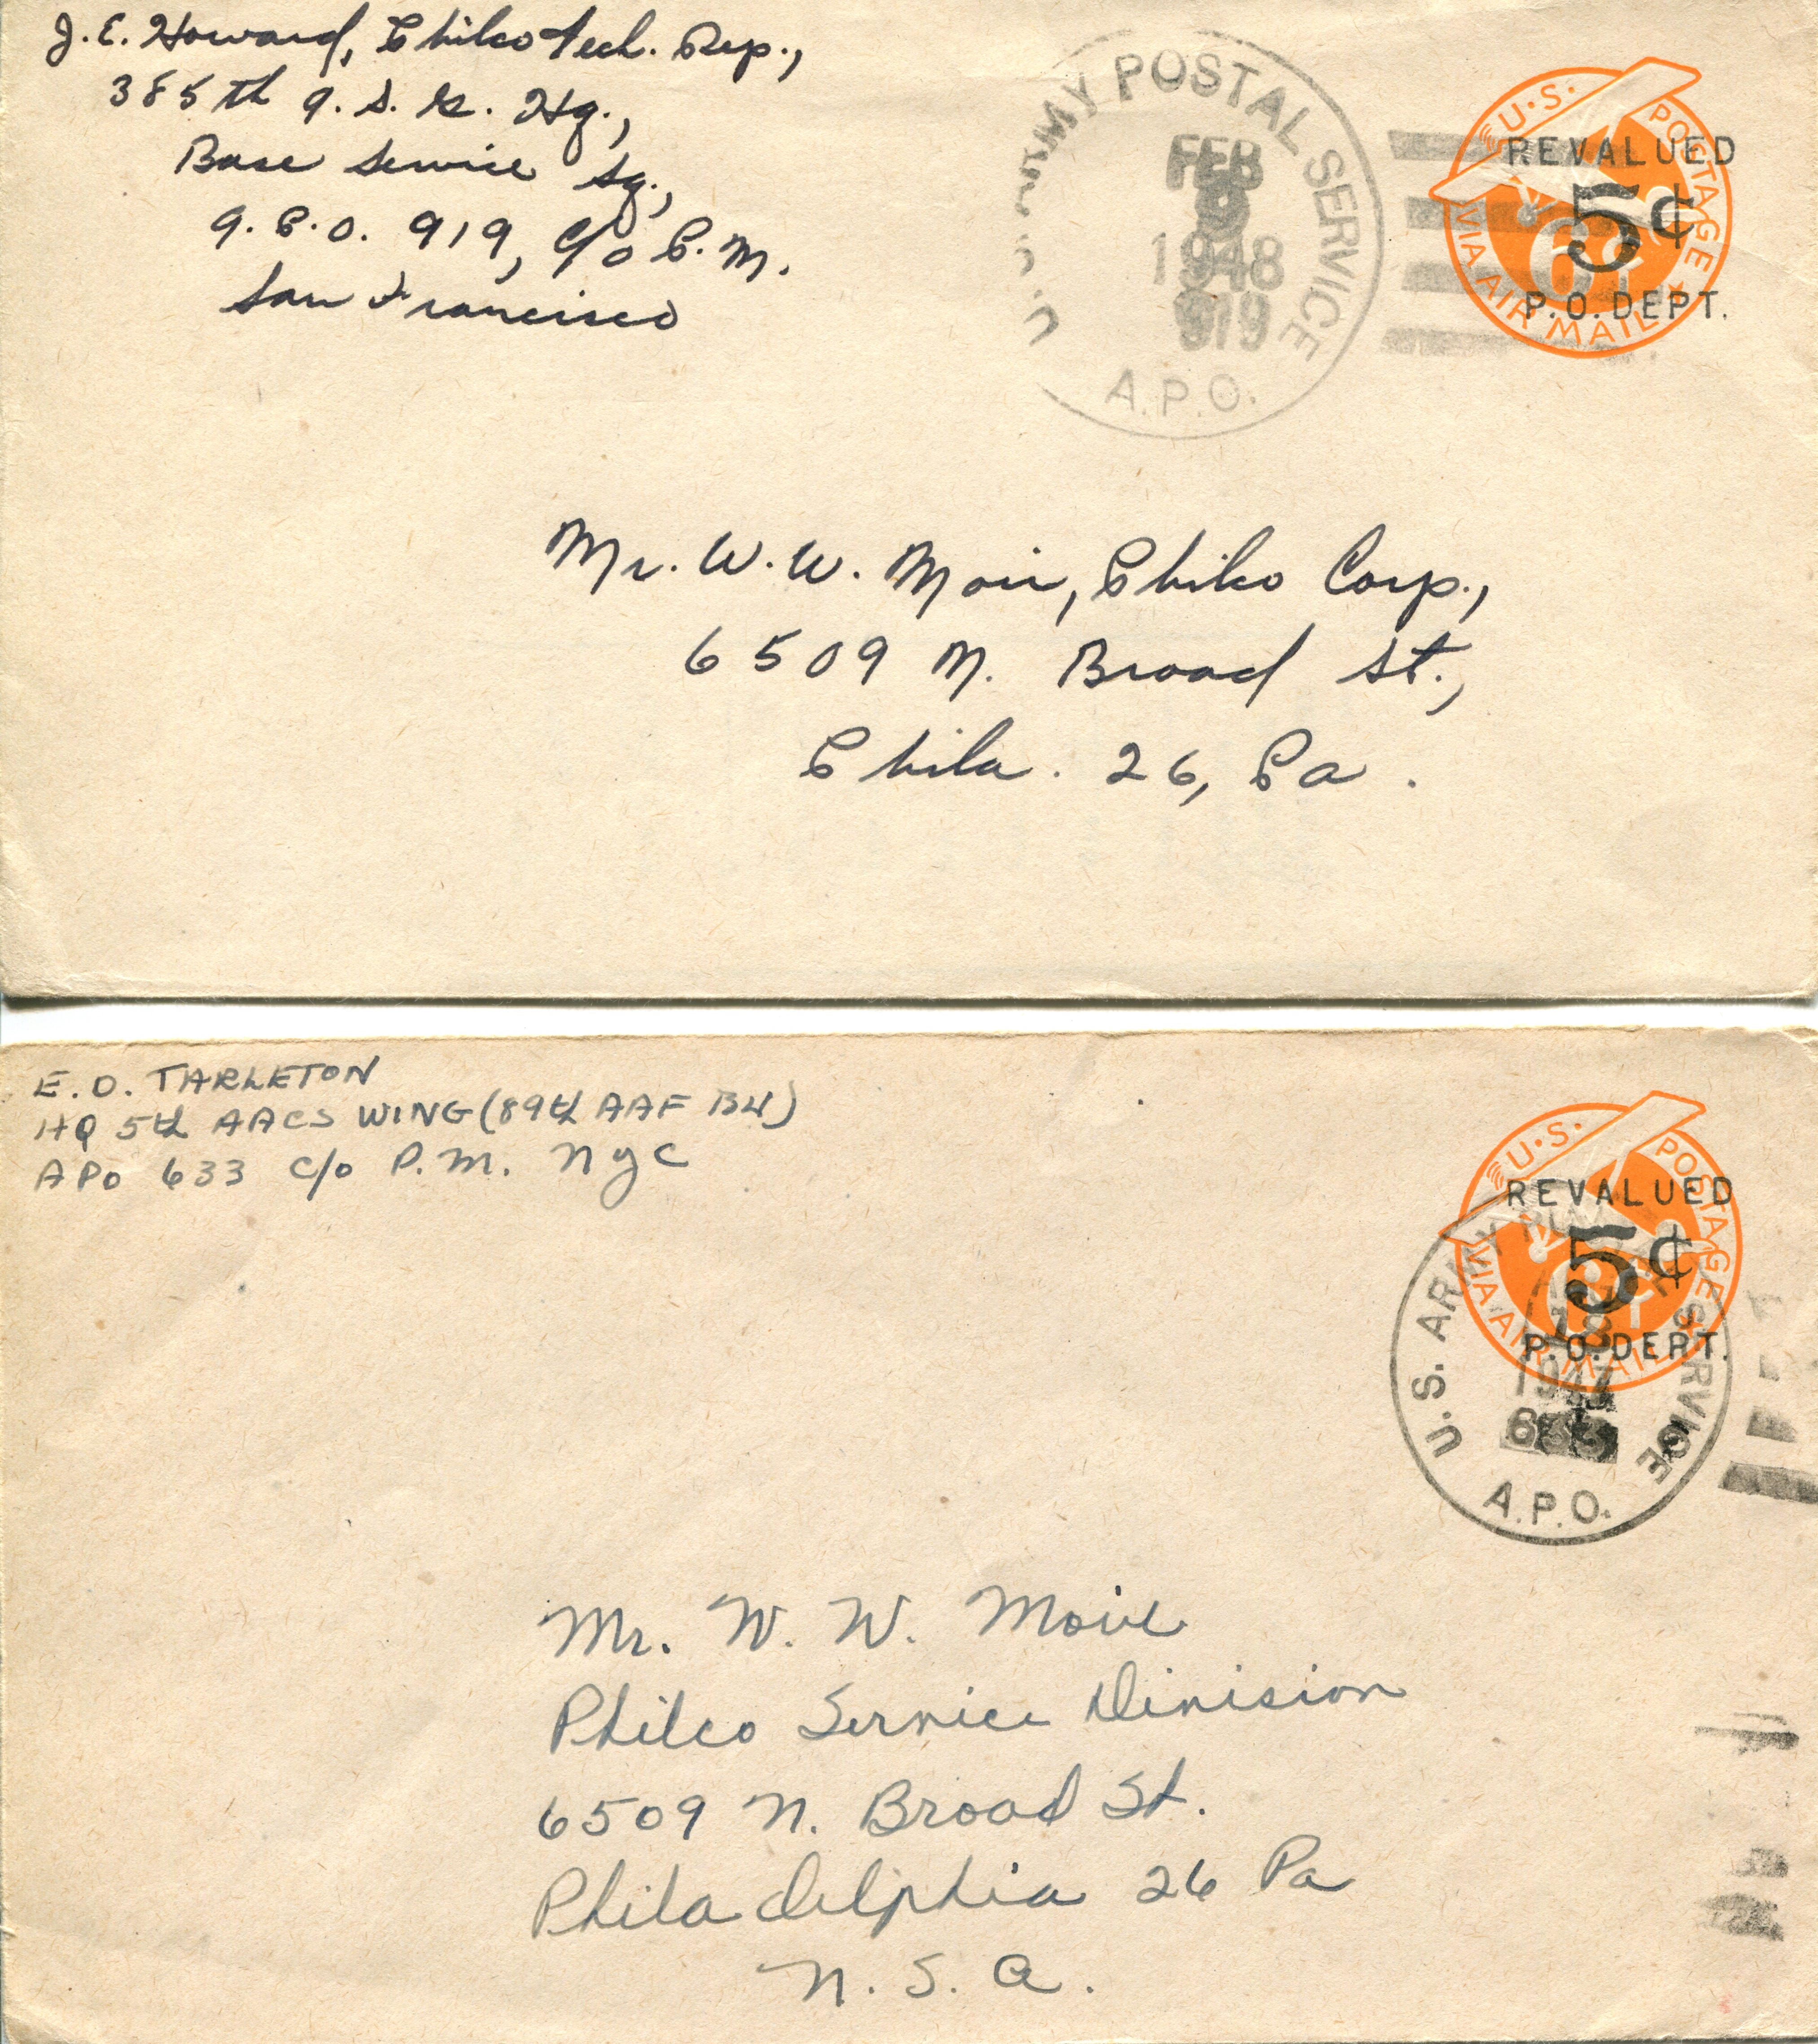 J. E. Howard, Philco Tech. Rep.,
385th A. S. G. Hq.,
Base Service Sq.,
A. P. O. 919, c/o P. M.
San Francisco
ARMY POSTAL SERVICE
FEB
9
1948
919
A.P.O.
U.S. POSTAGE
VIA AIR MAIL
6¢
REVALUED
5¢
P.O. DEPT.
Mr. W. W. Moir, Philco Corp.,
6509 N. Broad St.,
Phila. 26, Pa.
E. D. TARLETON
HQ 5th AACS WING (89th AAF BU)
APO 633 c/o P. M. NYC
U.S. POSTAGE
VIA AIR MAIL
6¢
REVALUED
5¢
P.O. DEPT.
U.S. ARMY POSTAL SERVICE
1947
A.P.O.
Mr. W. W. Moir
Philco Service Division
6509 N. Broad St.
Philadelphia 26 Pa
U. S. A.